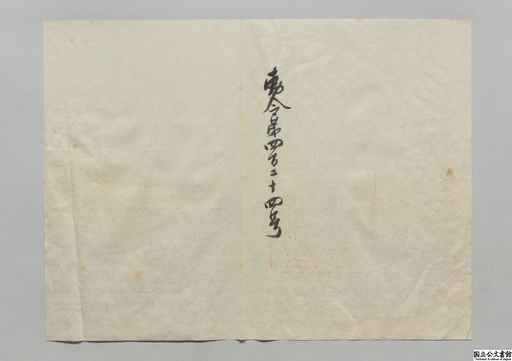 勅令第四百二十四号
国立公文書館
National Archives of Japan